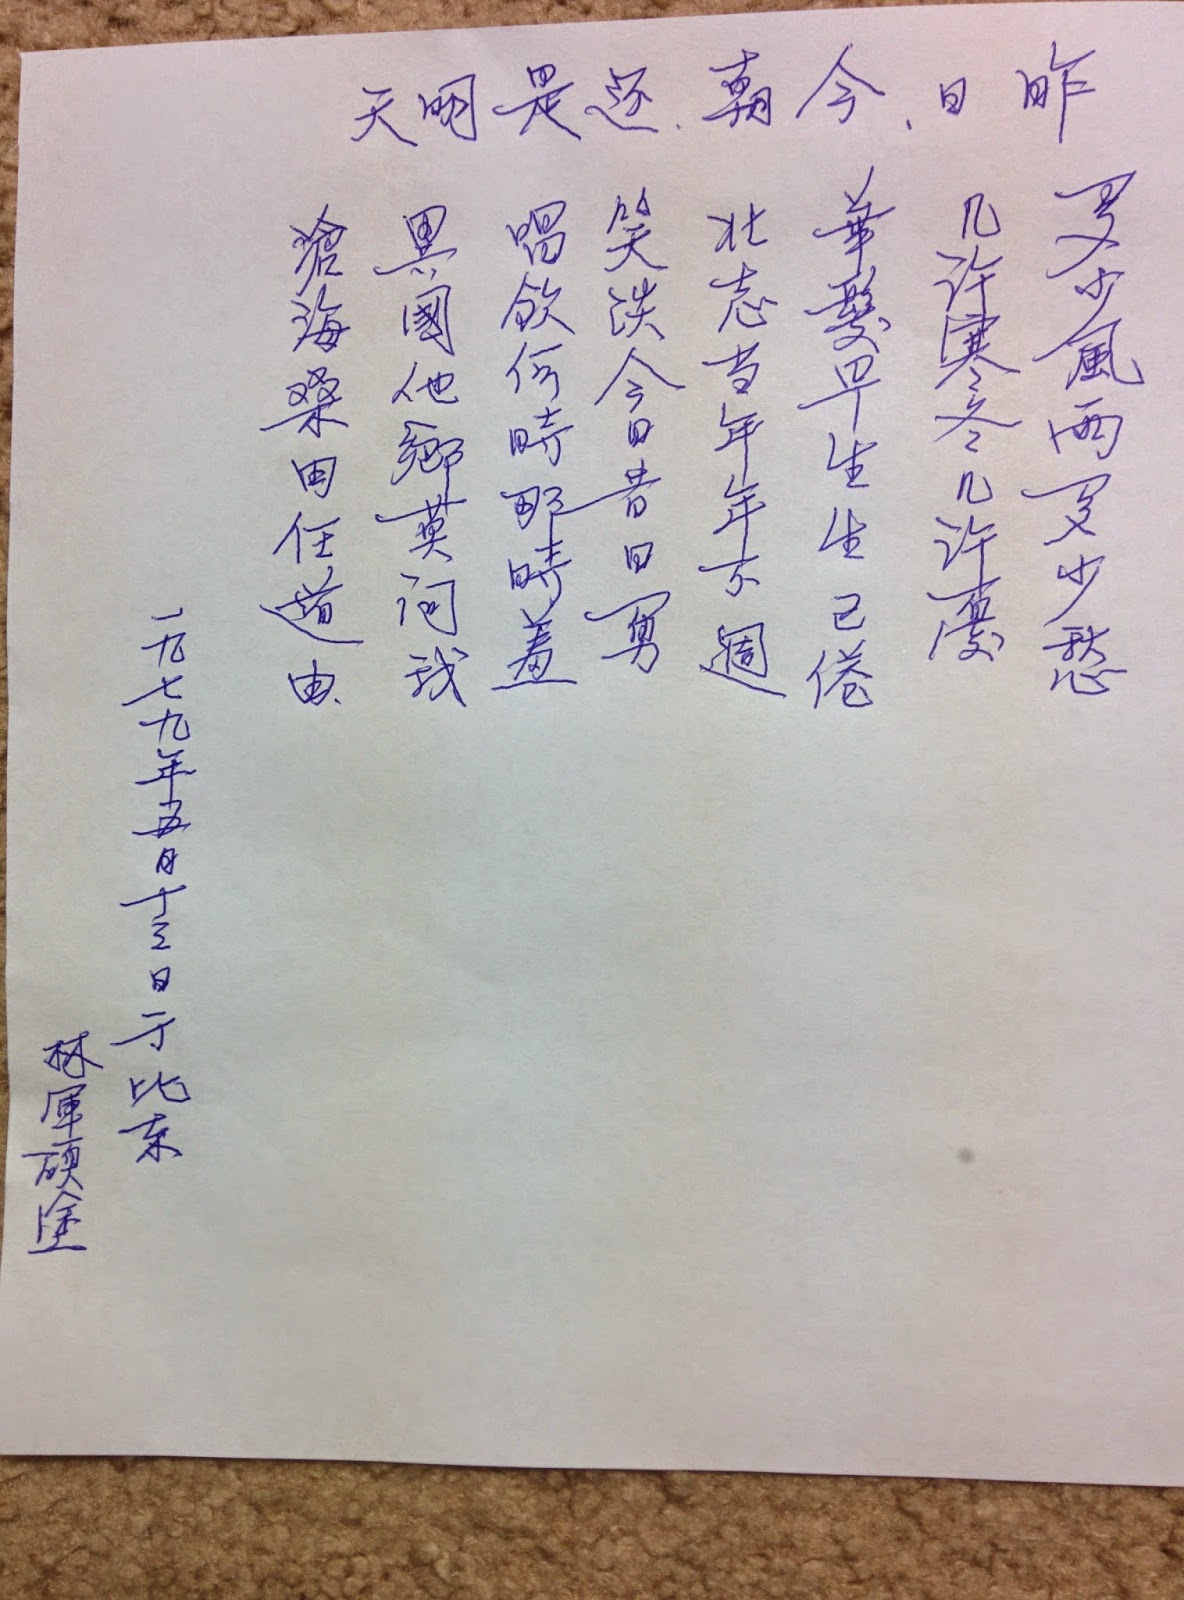 昨日、今朝、还是明天
多少風雨多少愁
几许寒冬几许憂
華髮早生生已倦
壯志当年年不週
笑淡今日昔日勇
唱飲何時那時羞
異國他鄉莫问我
滄海桑田任道由
一九七九年五月十三日于比京
林軍碩塗